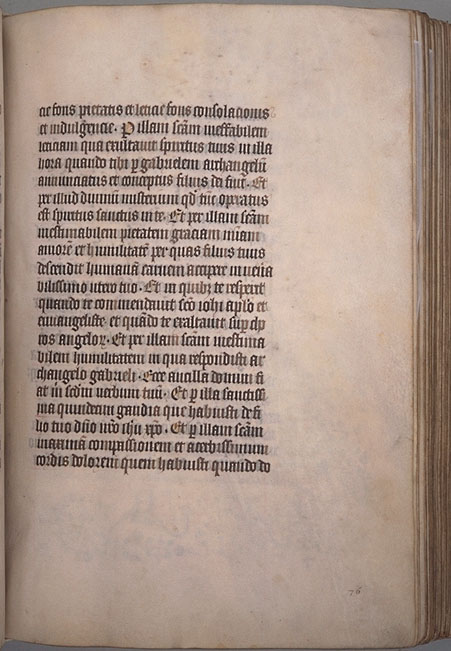 cie fons pietatis et leticie fons consolationis
et indulgencie. P illam scām ineffabilem
leticiam qua exultauit spiritus tuus in illa
hora quando tibi p gabrielem archangelū
annunciatus et conceptus filius dei fuit. Et
per illud diuinū misterium qd' tūc operatus
est spiritus sanctus in te. Et per illam scām
inestimabilem pietatem graciam miām
amorē et humilitatē per quas filius tuus
descendit humanā carnem accipere in uen̄a
bilissimo utero tuo. Et in quibz te respexit
quando te commendauit sc̄o iohi ap̄lo et
euuangeliste et quādo te exaltauit sup̄ cho
ros angeloꝝ. Et per illam scām inestima
bilem humilitatem in qua respondisti ar
changelo gabrieli. Ecce ancilla domini fi
at m̄ scdm uerbum tuū. Et p illa sanctissi
ma quindecim gaudia que habuisti de fi
lio tuo dn̄o nr̄o ihu xpo. Et p illam scām
maximā compassionem et acerbissimum
cordis dolorem quem habuisti quando do
76